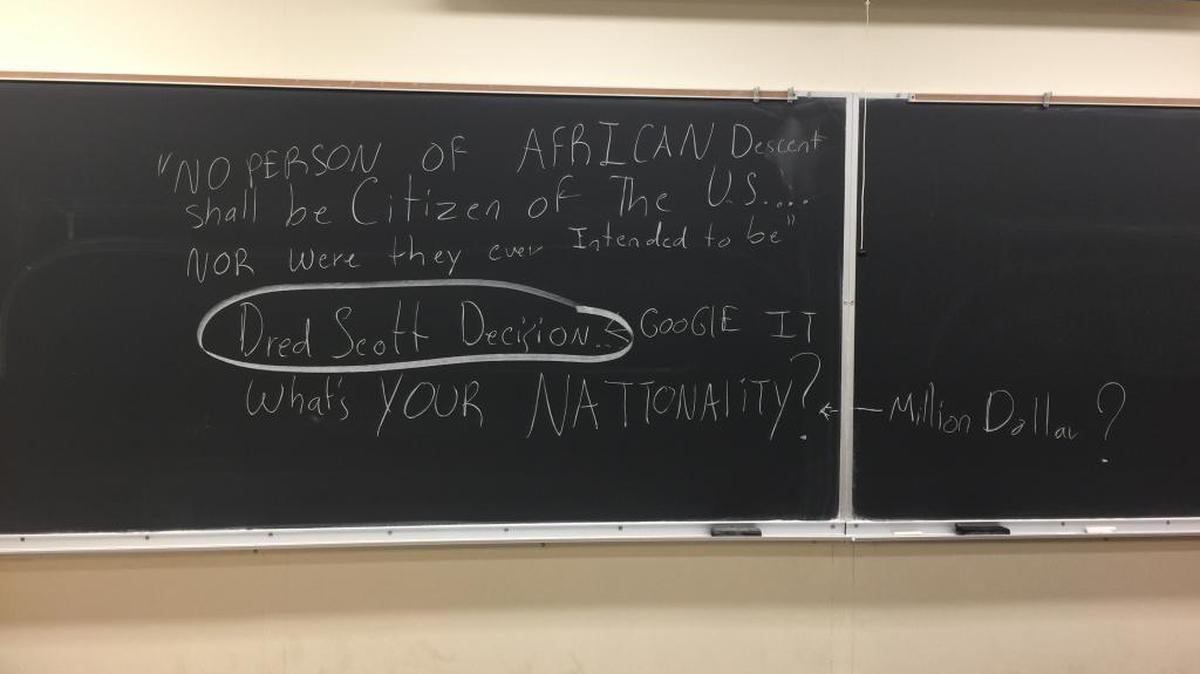 "NO PERSON OF AFRICAN Descent
shall be Citizen of The U.S....
NOR were they ever Intended to be"
Dred Scott Decision.. ← GOOGlE IT
What's YOUR NATIONALITY? ← Million Dollar ?